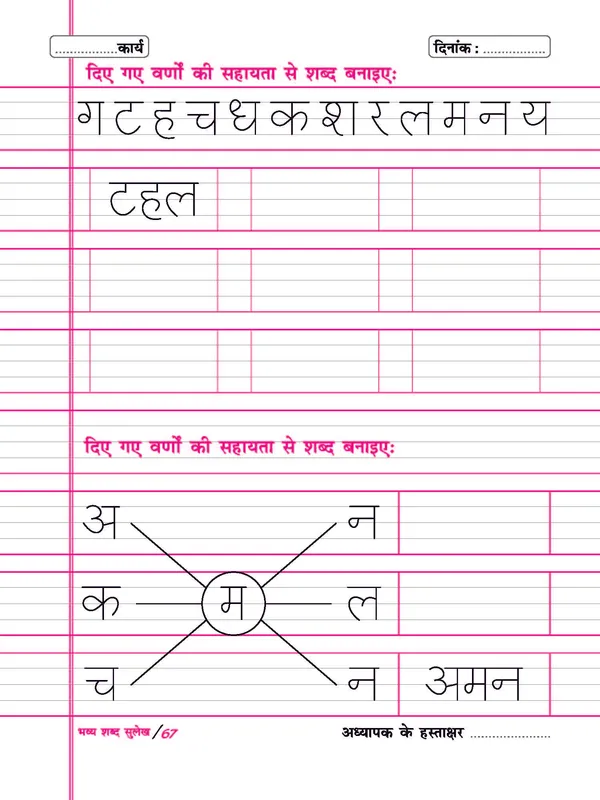 .................कार्य दिनांक : .................
दिए गए वर्णों की सहायता से शब्द बनाइए:
ग ट ह च ध क श र ल म न य
टहल
दिए गए वर्णों की सहायता से शब्द बनाइए:
अ न
क म ल
च न अमन
भव्य शब्द सुलेख/67 अध्यापक के हस्ताक्षर ......................